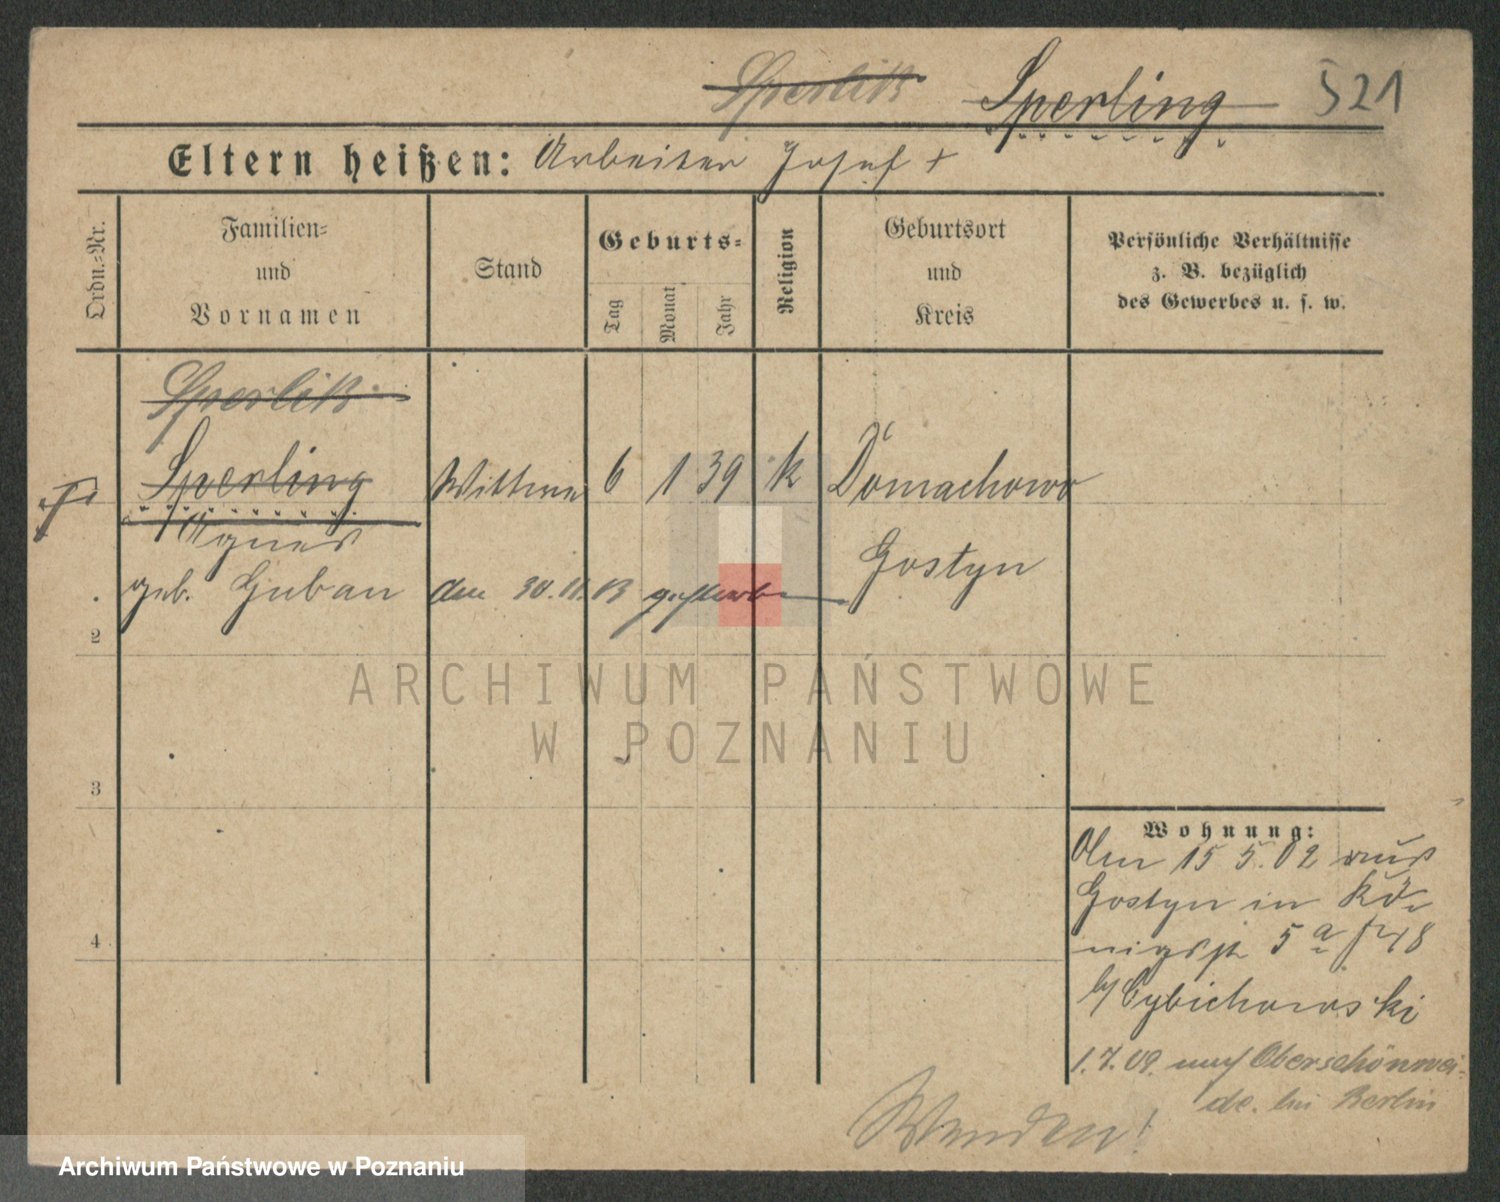 Sperlik Sperling 521
Eltern heißen: Arbeiter Josef +
Ordn.-Nr.
Familien-
und
Vornamen
Stand
Geburts-
Tag
Monat
Jahr
Religion
Geburtsort
und
Kreis
Persönliche Verhältnisse
z. B. bezüglich
des Gewerbes u. s. w.
Sperlik
Sperling Wittwe 6 1 39 k Domachowo
Agnes
Gostyn
geb. Guban den 30.11.13 gestorben
2
ARCHIWUM PAŃSTWOWE
W POZNANIU
3
Wohnung:
Am 15 5.02 aus
Gostyn in Kö-
4
nigspl 5a
b/ Cybichowski
1.7.09. nach Oberschönwei-
de. bei Berlin
Wenden!
Archiwum Państwowe w Poznaniu